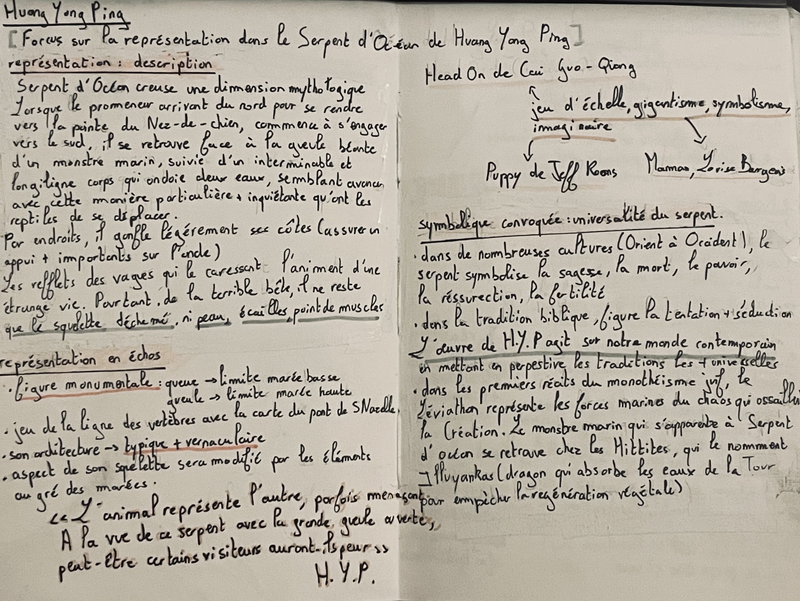 Huang Yong Ping
[Focus sur la représentation dans le Serpent d'Océan de Huang Yong Ping]
représentation : description
Serpent d'Océan creuse une dimension mythologique
Lorsque le promeneur arrivant du nord pour se rendre
vers la pointe du Nez-de-chien, commence à s'engager
vers le sud, il se retrouve face à la gueule béante
d'un monstre marin, suivie d'un interminable et
longiligne corps qui ondoie deux eaux, semblant avancer
avec cette manière particulière + inquiétante qu'ont les
reptiles de se déplacer.
Par endroits, il gonfle légèrement ses côtes (assurer un
appui + importants sur l'onde)
Les refflets des vagues qui le caressent l'animent d'une
étrange vie. Pourtant, de la terrible bête, il ne reste
que le squelette décharné, ni peau, écailles, point de muscles
représentation en échos
• figure monumentale : queue → limite marée basse
gueule → limite marée haute
• jeu de la ligne des vertèbres avec la carte du pont de S.Nazelle,
• son architecture → typique + vernaculaire
• aspect de son squelette sera modifié par les éléments
au gré des marées.
"L'animal représente l'autre, parfois menaçant
A la vue de ce serpent avec la grande gueule ouverte,
peut-être certains visiteurs auront-ils peur"
H.Y.P.
Head On de Cai Guo-Qiang
jeu d'échelle, gigantisme, symbolisme,
imaginaire
Puppy de Jeff Koons
Maman, Loise Bergeois
symbolique convoquée : universalité du serpent.
• dans de nombreuses cultures (Orient à Occident), le
serpent symbolise la sagesse, la mort, le pouvoir,
la réssurection, la fertilité
• dans la tradition biblique, figure la tentation + séduction
L'œuvre de H.Y.P agit sur notre monde contemporain
en mettant en perpestive les traditions les + universelles
• dans les premiers récits du monothéisme juif, le
Léviathan représente les forces marines du chaos qui assaillit
la Création. Le monstre marin qui s'apparente à Serpent
d'océan se retrouve chez les Hittites, qui le nomment
Illuyankas (dragon qui absorbe les eaux de la Tour
pour empêcher la regénération végétale)